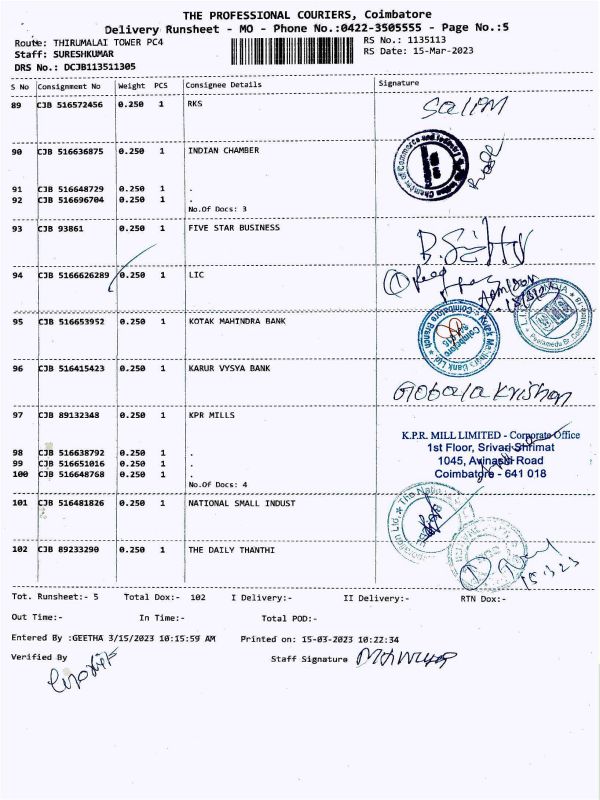 THE PROFESSIONAL COURIERS, Coimbatore
Delivery Runsheet - MO - Phone No.:0422-3505555 - Page No.:5
Route: THIRUMALAI TOWER PC4
RS No.: 1135113
Staff: SURESHKUMAR
RS Date: 15-Mar-2023
DRS No.: DCJB113511305
S No Consignment No Weight PCS Consignee Details Signature
89 CJB 516572456 0.250 1 RKS
Salim
90 CJB 516636875 0.250 1 INDIAN CHAMBER
91 CJB 516648729 0.250 1 .
92 CJB 516696704 0.250 1 .
No.Of Docs: 3
93 CJB 93861 0.250 1 FIVE STAR BUSINESS
94 CJB 5166626289 0.250 1 LIC
95 CJB 516653952 0.250 1 KOTAK MAHINDRA BANK
96 CJB 516415423 0.250 1 KARUR VYSYA BANK
Gobala Krishnan
97 CJB 89132348 0.250 1 KPR MILLS
K.P.R. MILL LIMITED - Corporate Office
1st Floor, Srivari Shrimat
1045, Avinashi Road
Coimbatore - 641 018
98 CJB 516638792 0.250 1 .
99 CJB 516651016 0.250 1 .
100 CJB 516648768 0.250 1 .
No.Of Docs: 4
101 CJB 516481826 0.250 1 NATIONAL SMALL INDUST
102 CJB 89233290 0.250 1 THE DAILY THANTHI
15.3.23
Tot. Runsheet:- 5 Total Dox:- 102 I Delivery:- II Delivery:- RTN Dox:-
Out Time:- In Time:- Total POD:-
Entered By :GEETHA 3/15/2023 10:15:59 AM Printed on: 15-03-2023 10:22:34
Verified By Staff Signature